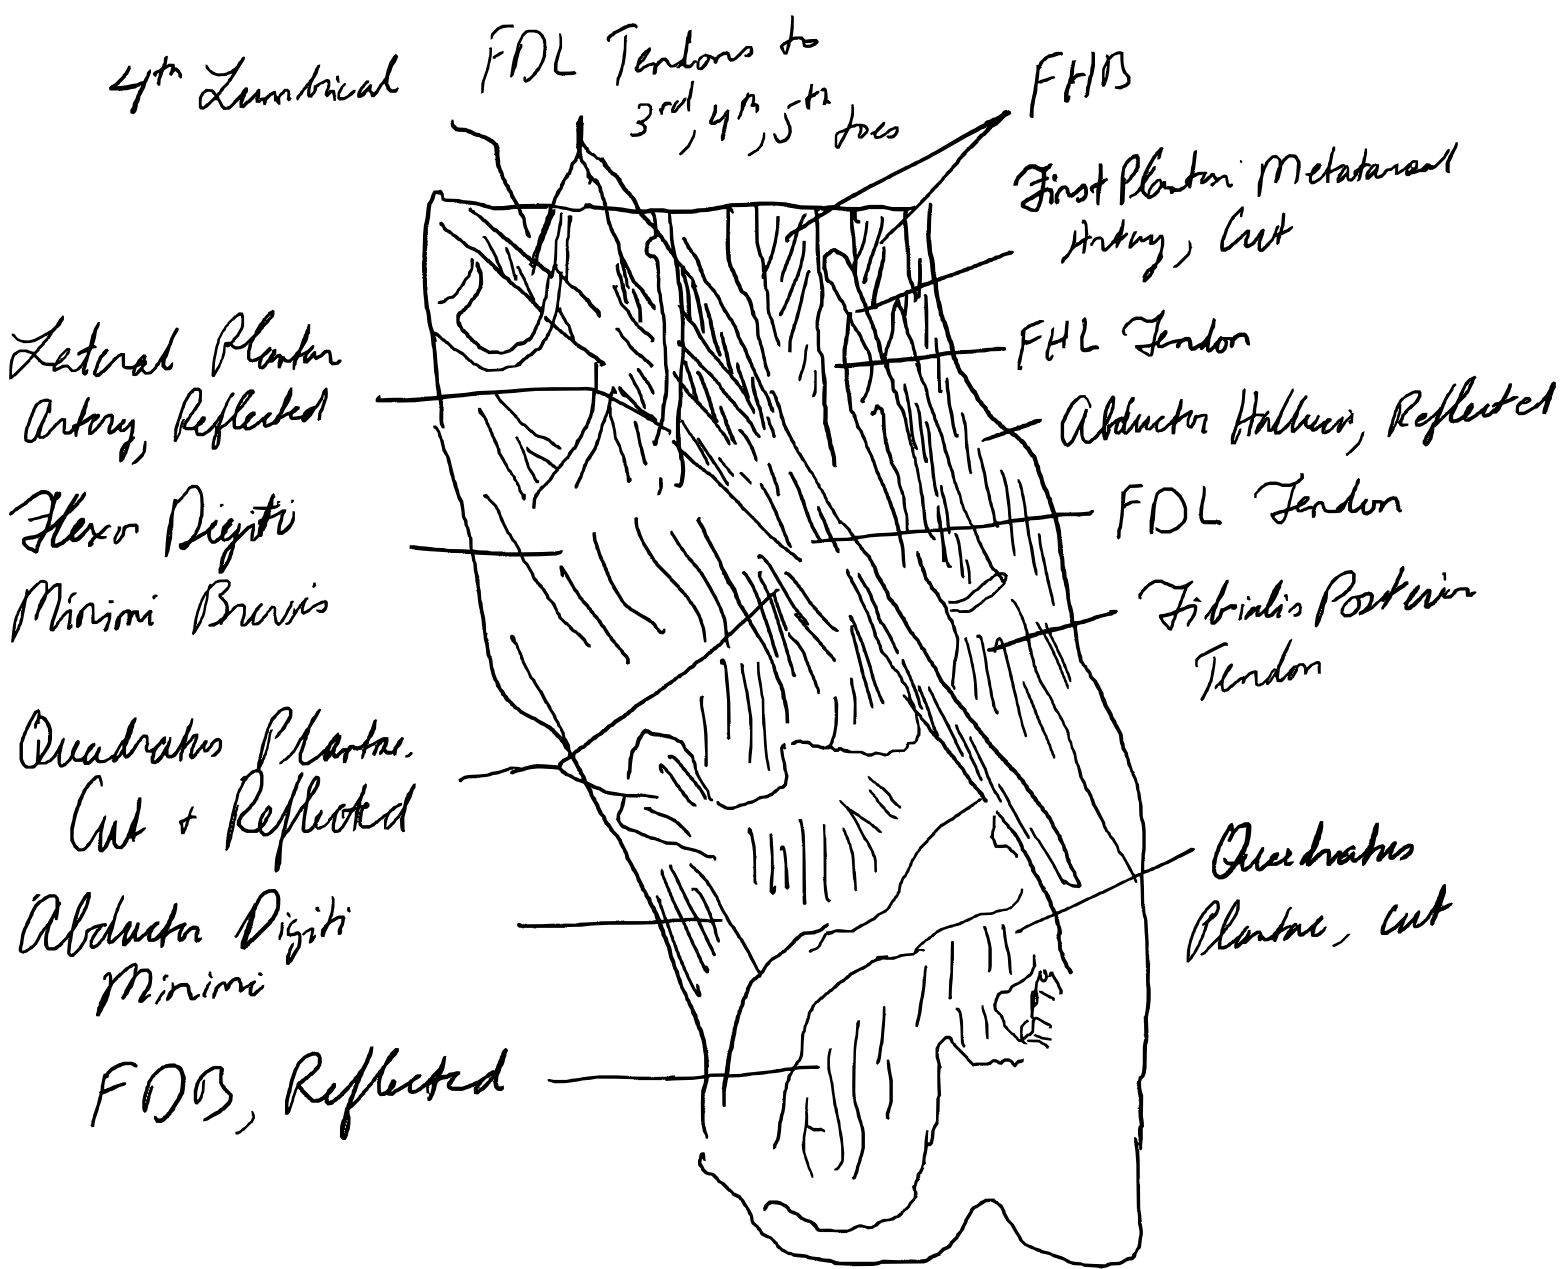 4th Lumbrical
FDL Tendons to
3rd, 4th, 5th toes
FHB
First Plantar Metatarsal
Artery, Cut
FHL Tendon
Abductor Hallucis, Reflected
FDL Tendon
Tibialis Posterior
Tendon
Quadratus
Plantae, cut
Lateral Plantar
Artery, Reflected
Flexor Digiti
Minimi Brevis
Quadratus Plantae.
Cut + Reflected
Abductor Digiti
Minimi
FDB, Reflected